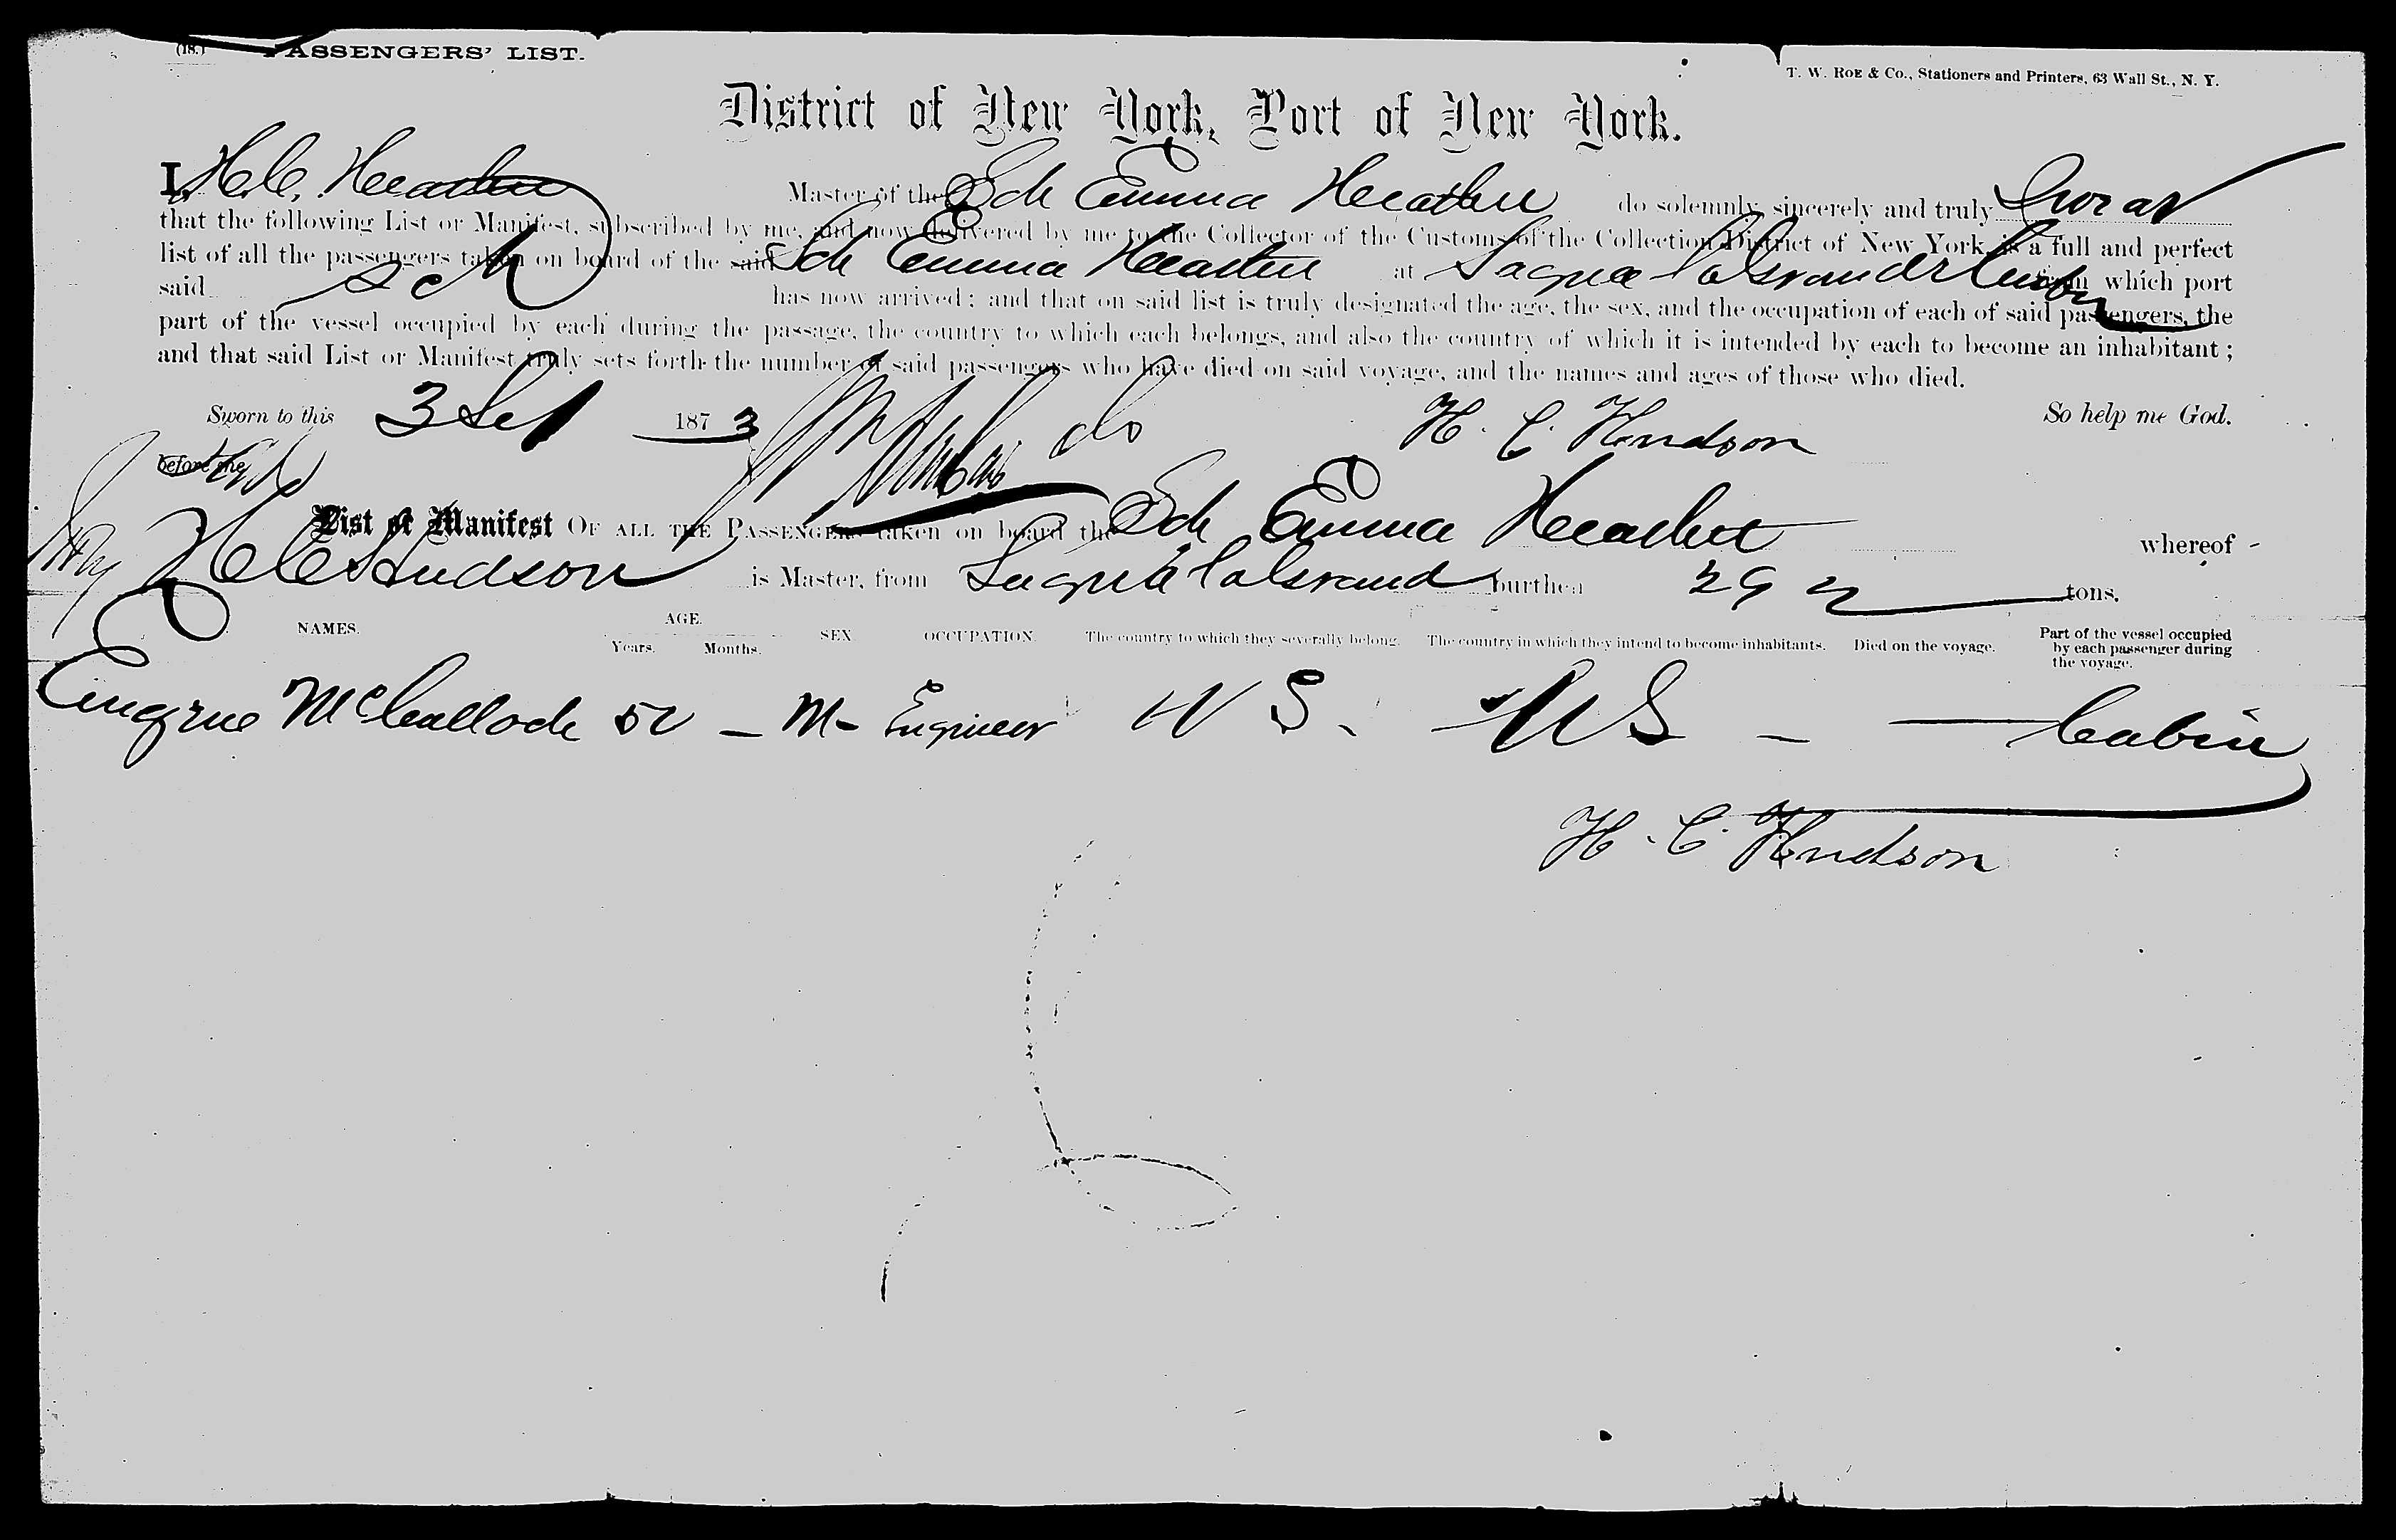 (18.) PASSENGERS' LIST.
T. W. ROE & Co., Stationers and Printers, 63 Wall St., N. Y.
District of New York, Port of New York.
I, H. C. Master of the Sch Emma do solemnly, sincerely and truly Swear
that the following List or Manifest, subscribed by me, and now delivered by me to the Collector of the Customs of the Collection District of New York, is a full and perfect
list of all the passengers taken on board of the said Sch Emma at Sagua from which port
said Sch has now arrived; and that on said list is truly designated the age, the sex, and the occupation of each of said passengers, the
part of the vessel occupied by each during the passage, the country to which each belongs, and also the country of which it is intended by each to become an inhabitant;
and that said List or Manifest truly sets forth the number of said passengers who have died on said voyage, and the names and ages of those who died.
Sworn to this 3 1873 So help me God.
H. C. Hudson
before me
List or Manifest OF ALL THE PASSENGERS taken on board the Sch Emma whereof
H C Hudson is Master, from Sagua burthen tons.
NAMES. AGE. Years. Months. SEX. OCCUPATION. The country to which they severally belong. The country in which they intend to become inhabitants. Died on the voyage. Part of the vessel occupied by each passenger during the voyage.
Eugene 50 — M — Engineer U S. U S — — Cabin
H. C. Hudson